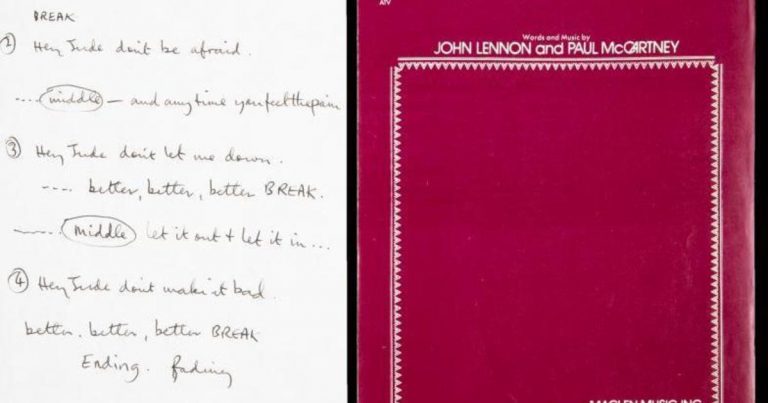 BREAK
② Hey Jude don't be afraid.
.... middle — and anytime you feel the pain
③ Hey Jude don't let me down.
---- better, better, better BREAK.
middle let it out + let it in ...
④ Hey Jude don't make it bad.
better. better, better BREAK
Ending. fading
ATV
Words and Music by
JOHN LENNON and PAUL McCARTNEY
MACLEN MUSIC INC